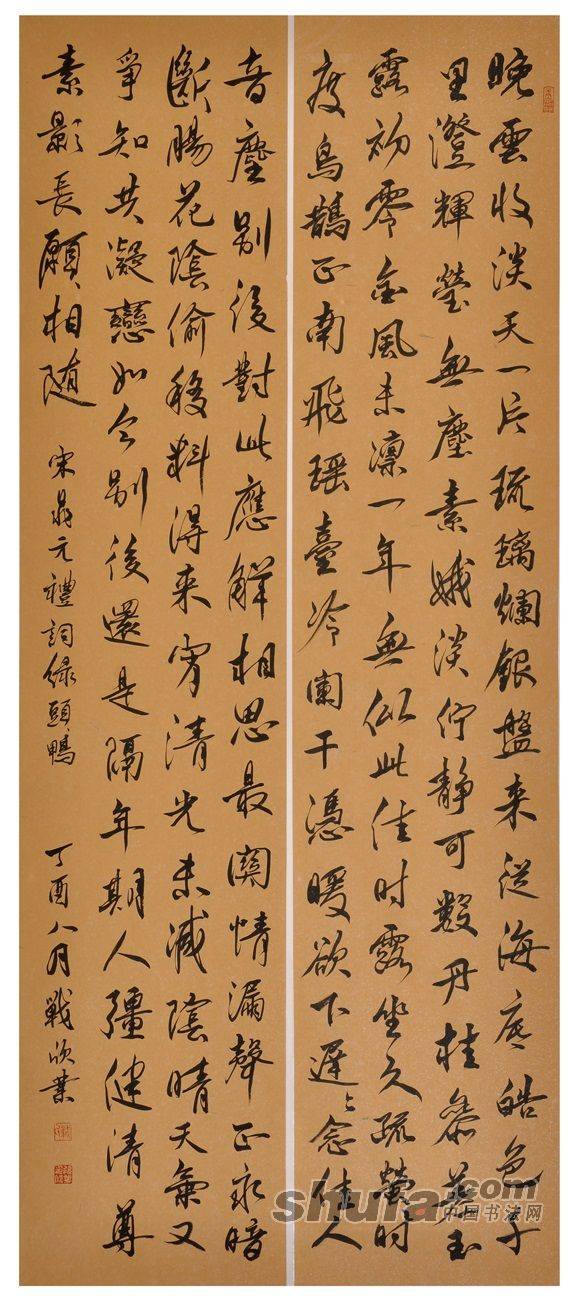 晚雲收淡天一片琉璃爛銀盤来従海底皓色千
里澄輝瑩無塵素娥淡佇静可数丹桂參差玉
露初零金風未凛一年無似此佳時露坐久疏螢時
度烏鵲正南飛瑶臺冷闌干憑暖欲下遲々念佳人
音塵别後對此應解相思最關情漏聲正永暗
斷腸花陰偷移料得来宵清光未减陰晴天氣又
爭知共凝戀如今别後還是隔年期人彊健清尊
素影長願相随 宋晁元禮詞緑頭鴨 丁酉八月戰欣業
shufa.com
中国书法网